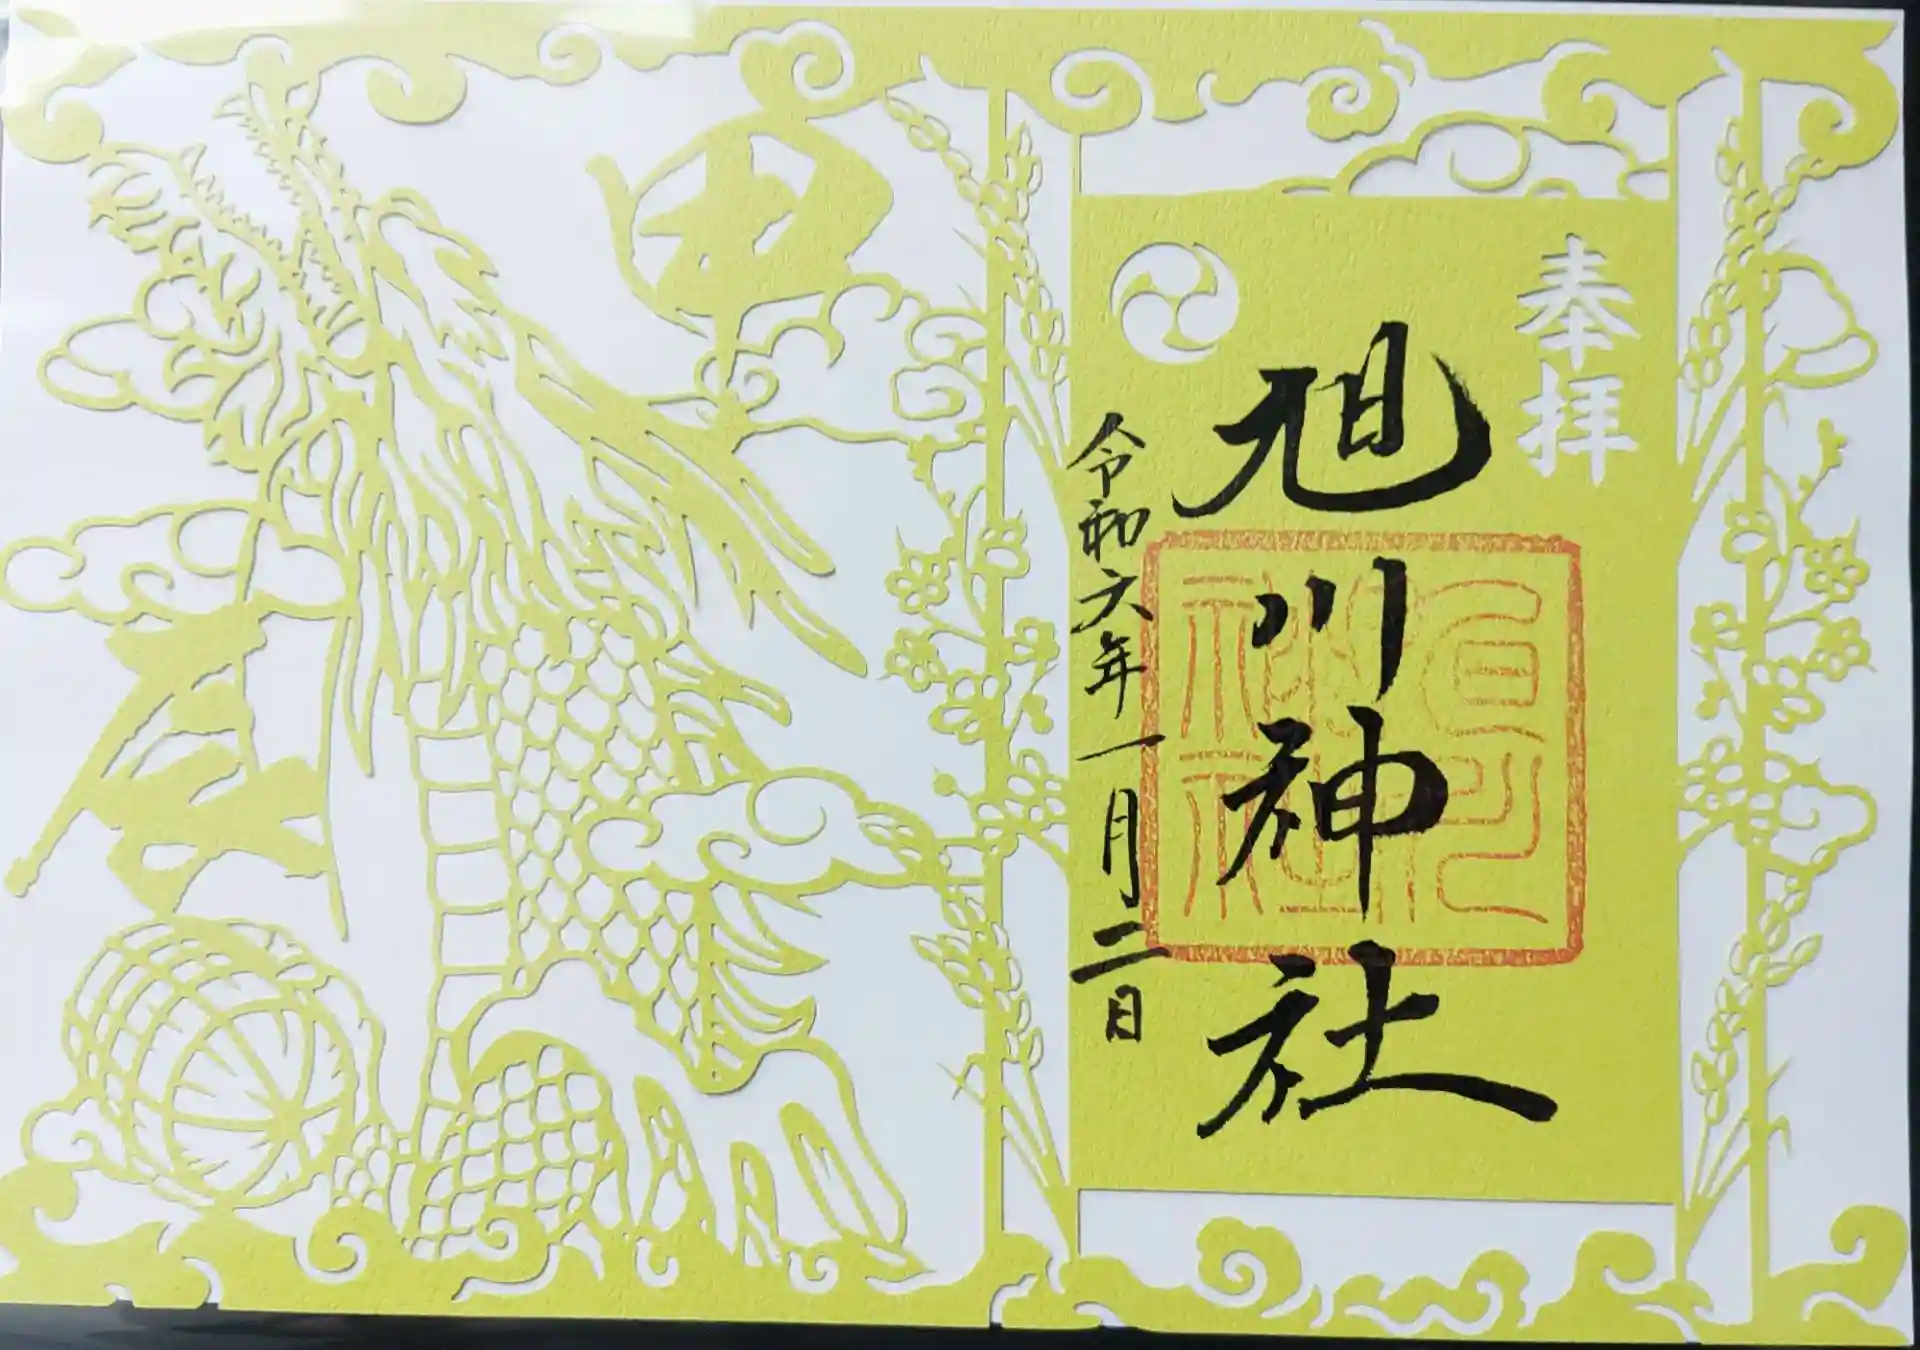 奉拝
旭川神社
旭川
神社
令和六年一月二日
甲
辰